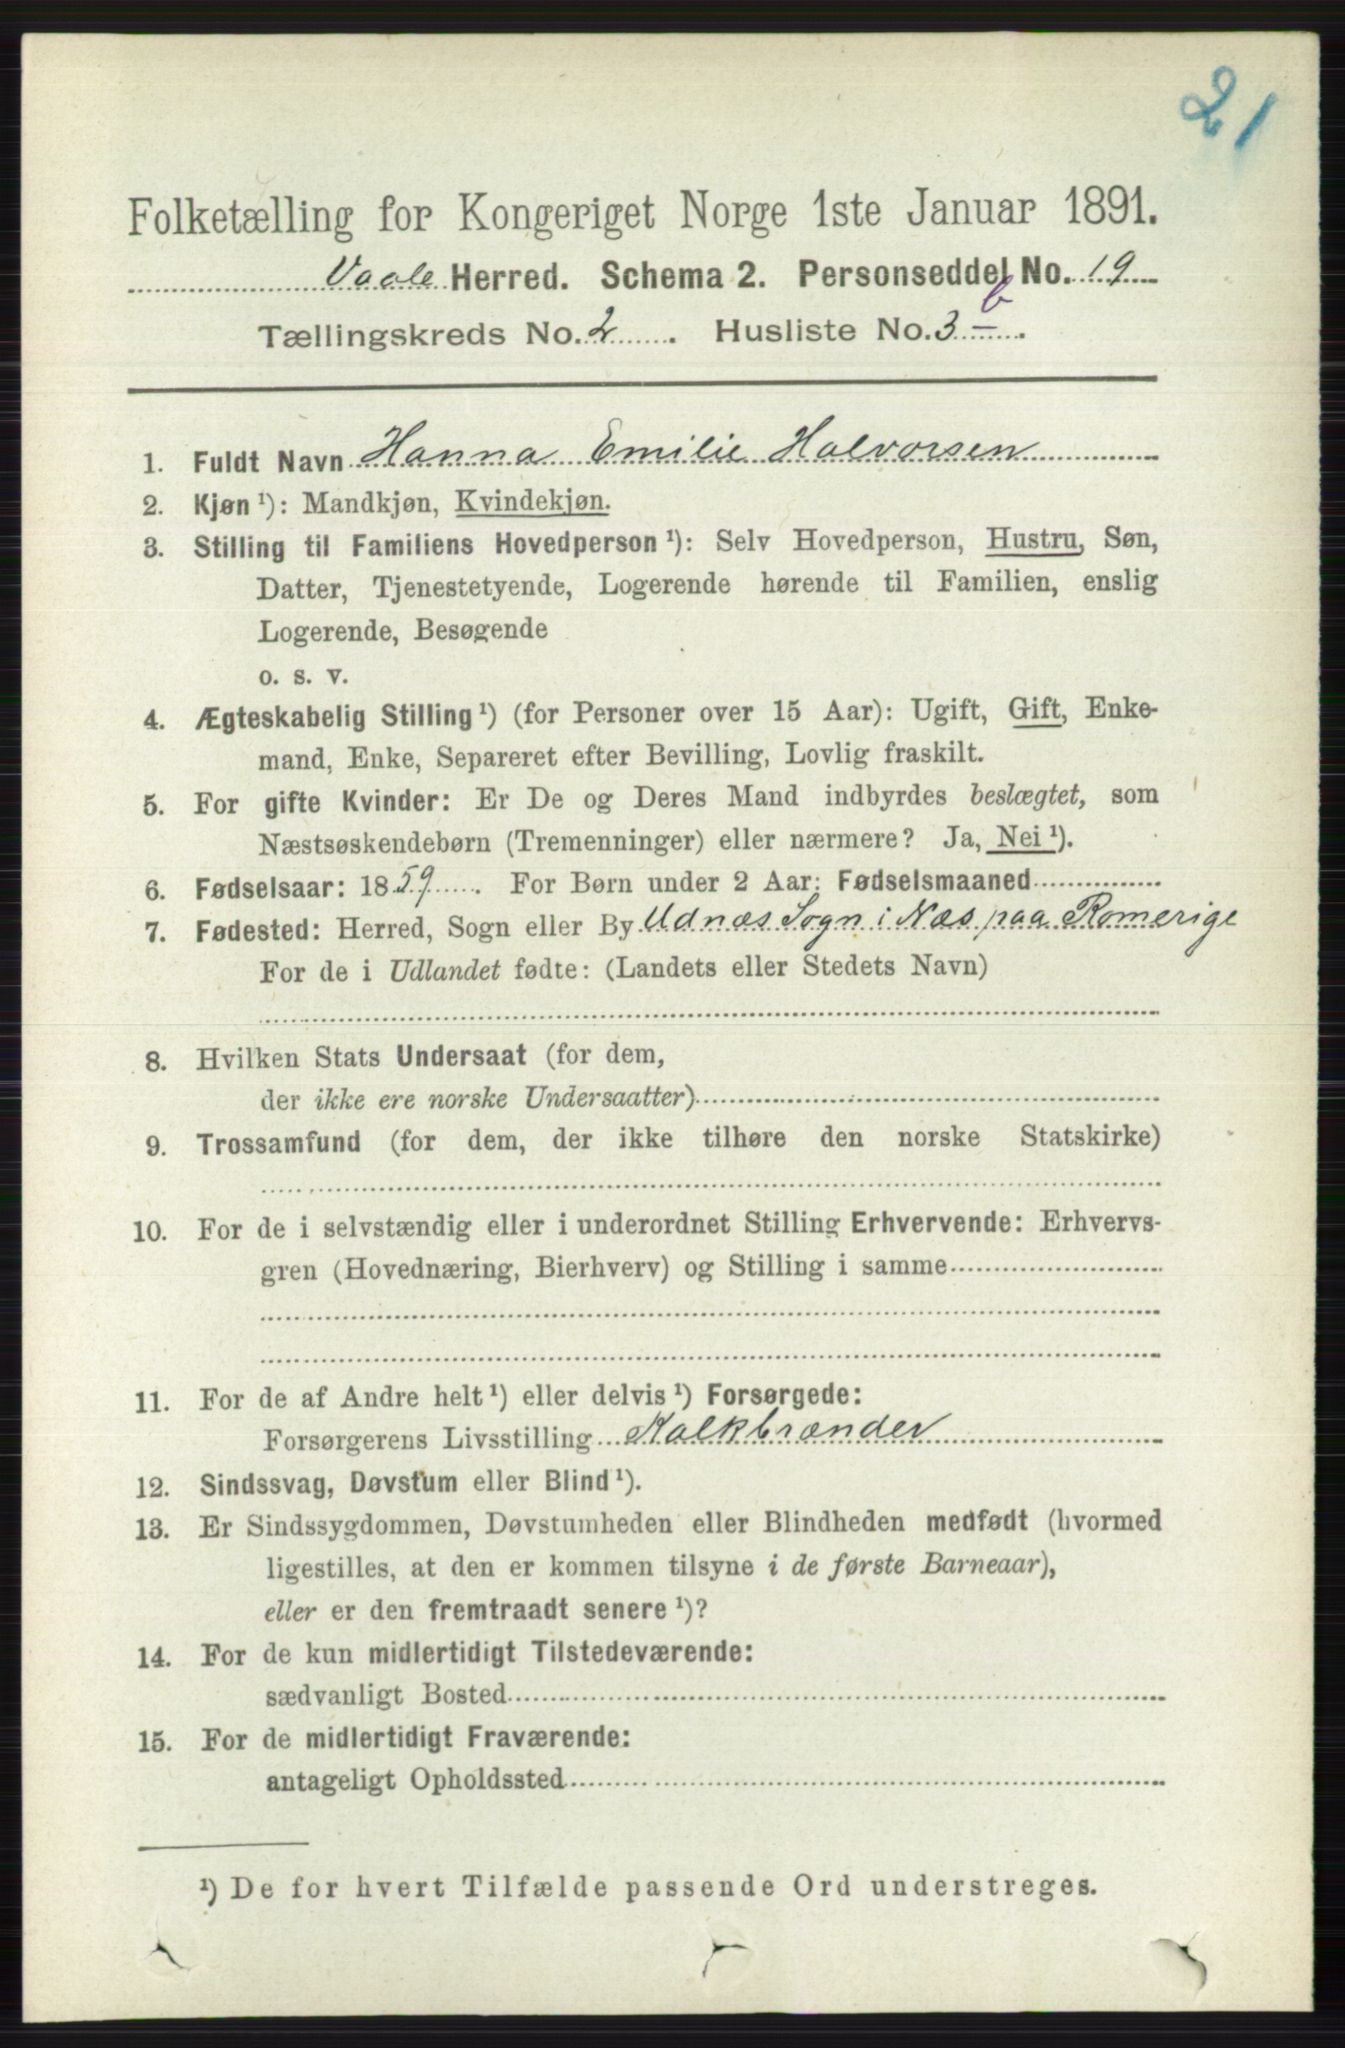 21
Folketælling for Kongeriget Norge 1ste Januar 1891.
Vaale Herred. Schema 2. Personseddel No. 19
Tællingskreds No. 2. Husliste No. 3 b.
1. Fuldt Navn Hanna Emilie Halvorsen
2. Kjøn ¹): Mandkjøn, Kvindekjøn.
3. Stilling til Familiens Hovedperson ¹): Selv Hovedperson, Hustru, Søn,
Datter, Tjenestetyende, Logerende hørende til Familien, enslig
Logerende, Besøgende
o. s. v.
4. Ægteskabelig Stilling ¹) (for Personer over 15 Aar): Ugift, Gift, Enke-
mand, Enke, Separeret efter Bevilling, Lovlig fraskilt.
5. For gifte Kvinder: Er De og Deres Mand indbyrdes beslægtet, som
Næstsøskendebørn (Tremenninger) eller nærmere? Ja, Nei ¹).
6. Fødselsaar: 1859. For Børn under 2 Aar: Fødselsmaaned
7. Fødested: Herred, Sogn eller By Udnæs Sogn i Næs paa Romerige
For de i Udlandet fødte: (Landets eller Stedets Navn)
8. Hvilken Stats Undersaat (for dem,
der ikke ere norske Undersaatter)
9. Trossamfund (for dem, der ikke tilhøre den norske Statskirke)
10. For de i selvstændig eller i underordnet Stilling Erhvervende: Erhvervs-
gren (Hovednæring, Bierhverv) og Stilling i samme
11. For de af Andre helt ¹) eller delvis ¹) Forsørgede:
Forsørgerens Livsstilling Kalkbrænder
12. Sindssvag, Døvstum eller Blind ¹).
13. Er Sindssygdommen, Døvstumheden eller Blindheden medfødt (hvormed
ligestilles, at den er kommen tilsyne i de første Barneaar),
eller er den fremtraadt senere ¹)?
14. For de kun midlertidigt Tilstedeværende:
sædvanligt Bosted
15. For de midlertidigt Fraværende:
antageligt Opholdssted
¹) De for hvert Tilfælde passende Ord understreges.